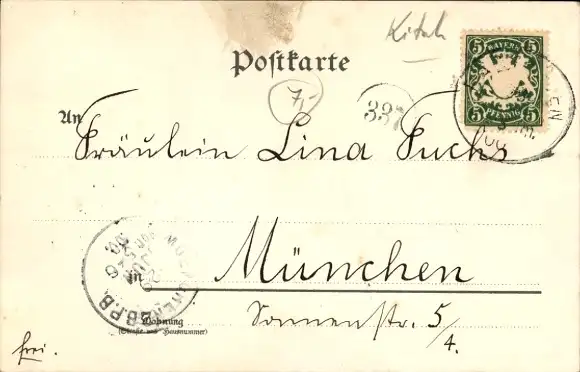 Kitsch
Postkarte
BAYERN
5 5
5 5
PFENNIG
7,-
337
An
Fräulein Lina Fuchs
in
München
Sonnenstr. 5/4.
Wohnung
(Straße und Hausnummer)
B.P.B.
frei.